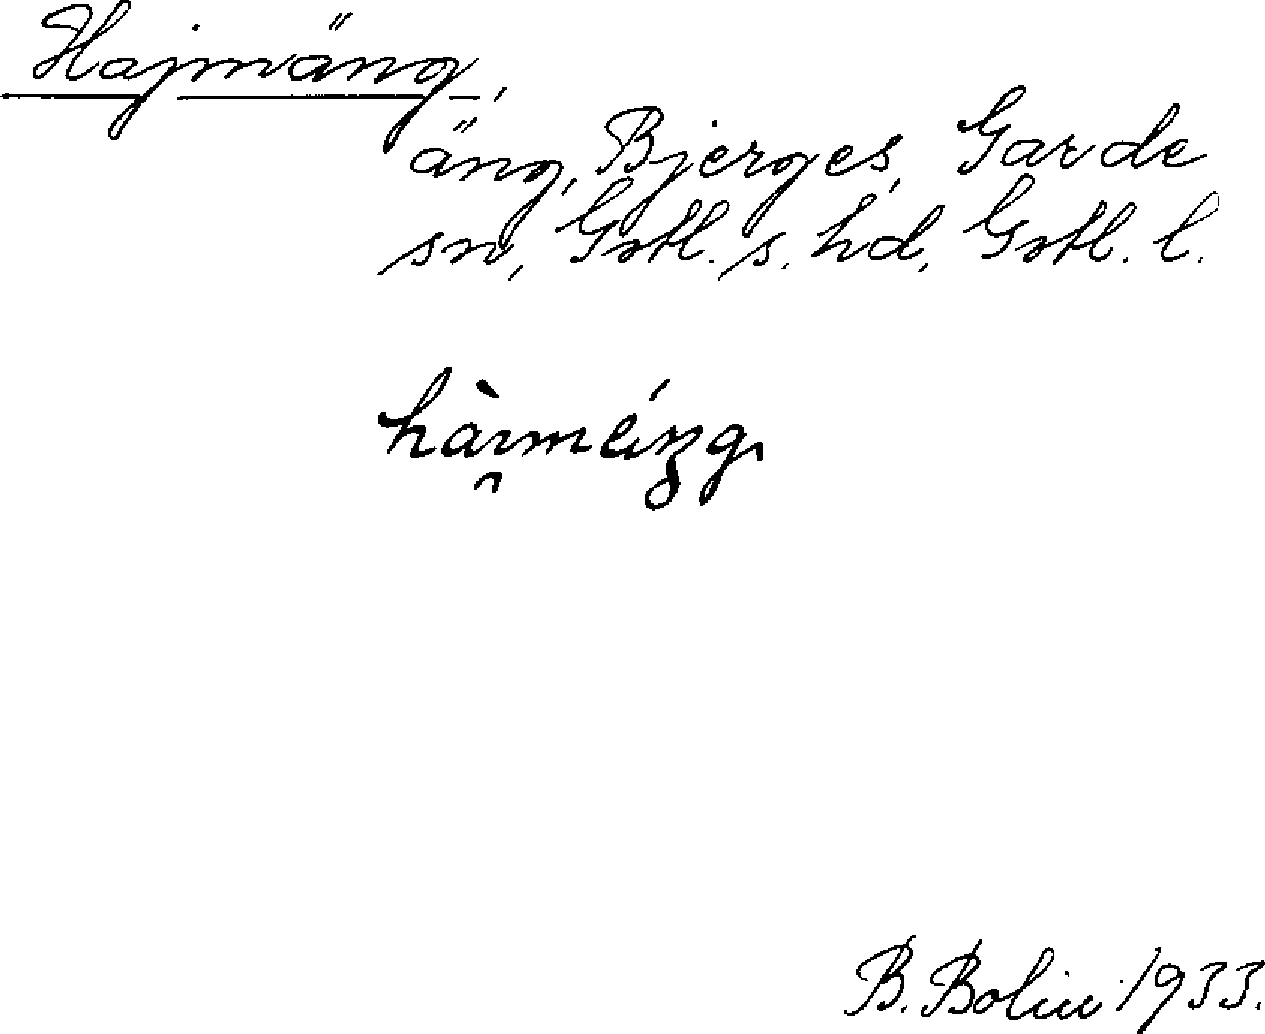 Hajmäng,
äng, Bjerges, Garde
sn, Gotl. s. hd, Gotl. l.
hàı̯méŋg
B. Bolin 1933.